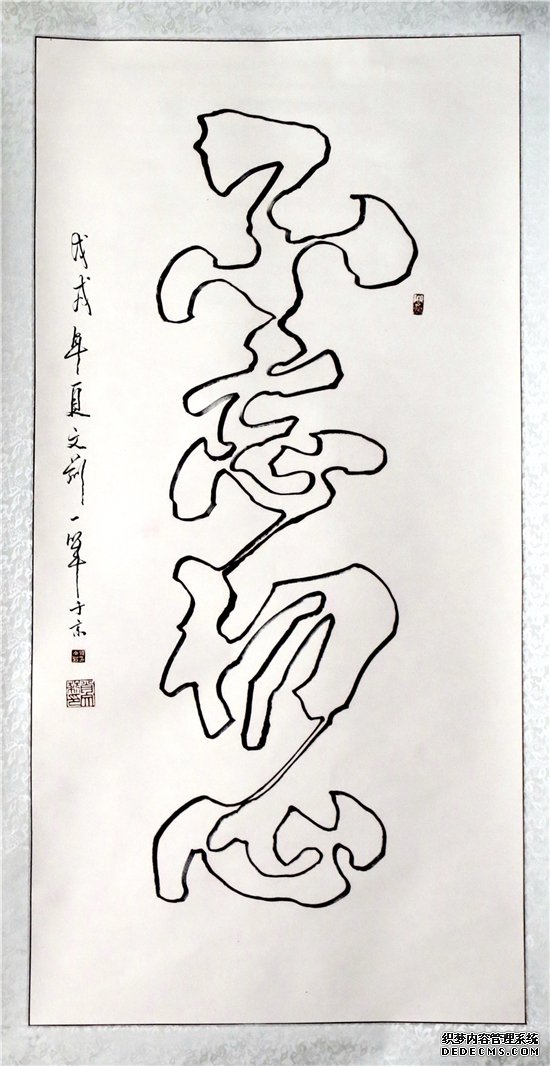 不忘初心
戊戌年夏文新一笔于京
织梦内容管理系统
DEDECMS.COM